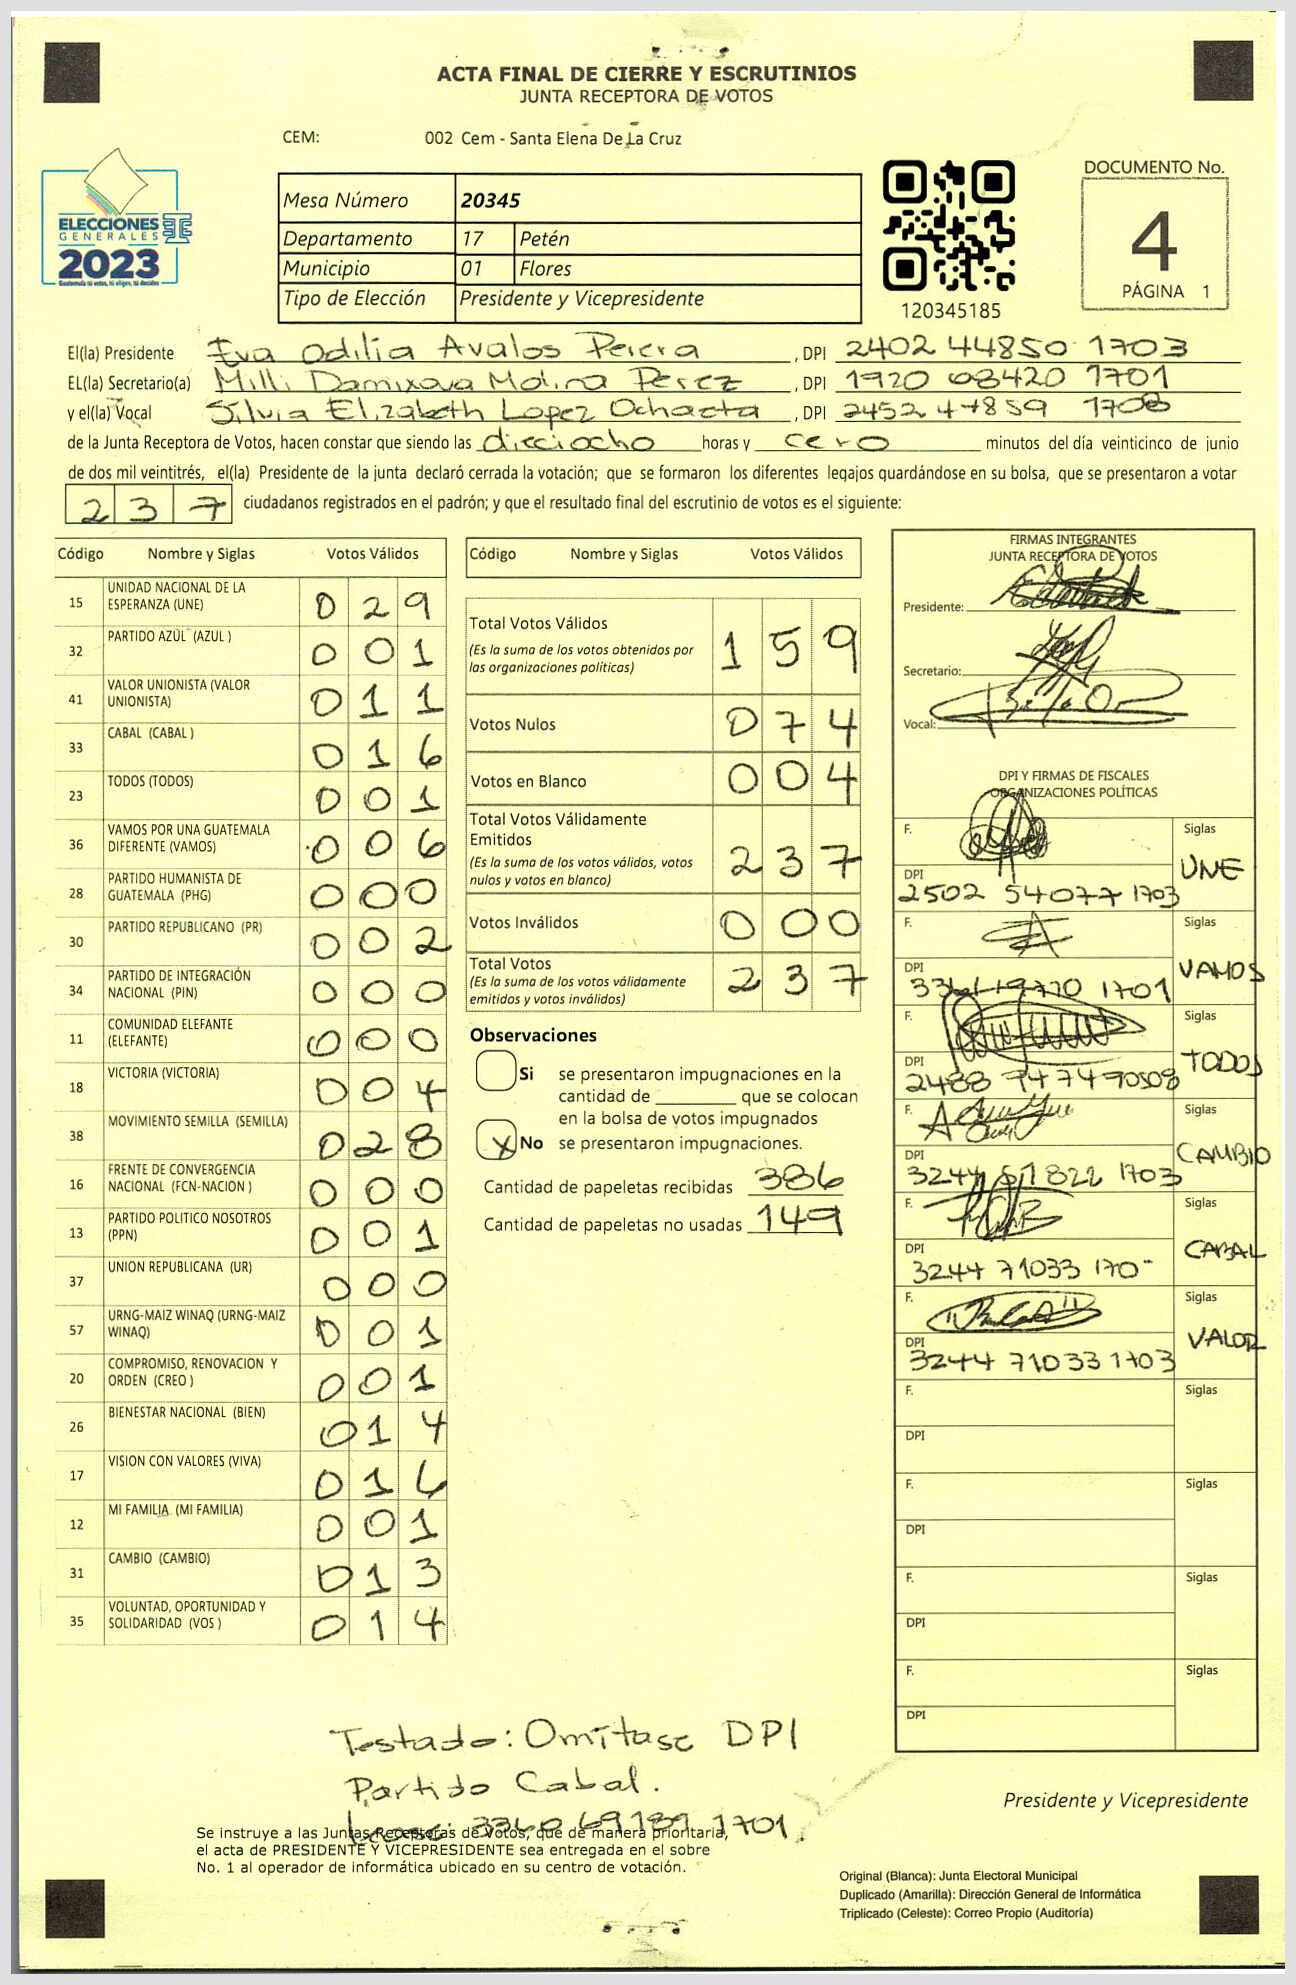 ACTA FINAL DE CIERRE Y ESCRUTINIOS
JUNTA RECEPTORA DE VOTOS
CEM: 002 Cem - Santa Elena De La Cruz
ELECCIONES
GENERALES
2023
Guatemala tú votas, tú eliges, tú decides
Mesa Número 20345
Departamento 17 Petén
Municipio 01 Flores
Tipo de Elección Presidente y Vicepresidente
120345185
DOCUMENTO No.
4
PÁGINA 1
El(la) Presidente Eva Odilia Avalos Perera, DPI 2402 44850 1703
EL(la) Secretario(a) Milli Molina Perez, DPI 1920 08420 1701
y el(la) Vocal Silvia Elizabeth Lopez Ochaeta, DPI 2452 47859 1708
de la Junta Receptora de Votos, hacen constar que siendo las dieciocho horas y cero minutos del día veinticinco de junio
de dos mil veintitrés, el(la) Presidente de la junta declaró cerrada la votación; que se formaron los diferentes legajos quardándose en su bolsa, que se presentaron a votar
237 ciudadanos registrados en el padrón; y que el resultado final del escrutinio de votos es el siguiente:
Código Nombre y Siglas Votos Válidos
15 UNIDAD NACIONAL DE LA ESPERANZA (UNE) 029
32 PARTIDO AZUL (AZUL ) 001
41 VALOR UNIONISTA (VALOR UNIONISTA) 011
33 CABAL (CABAL ) 016
23 TODOS (TODOS) 001
36 VAMOS POR UNA GUATEMALA DIFERENTE (VAMOS) 006
28 PARTIDO HUMANISTA DE GUATEMALA (PHG) 000
30 PARTIDO REPUBLICANO (PR) 002
34 PARTIDO DE INTEGRACIÓN NACIONAL (PIN) 000
11 COMUNIDAD ELEFANTE (ELEFANTE) 000
18 VICTORIA (VICTORIA) 004
38 MOVIMIENTO SEMILLA (SEMILLA) 028
16 FRENTE DE CONVERGENCIA NACIONAL (FCN-NACION ) 000
13 PARTIDO POLITICO NOSOTROS (PPN) 001
37 UNION REPUBLICANA (UR) 000
57 URNG-MAIZ WINAQ (URNG-MAIZ WINAQ) 001
20 COMPROMISO, RENOVACION Y ORDEN (CREO ) 001
26 BIENESTAR NACIONAL (BIEN) 014
17 VISION CON VALORES (VIVA) 016
12 MI FAMILIA (MI FAMILIA) 001
31 CAMBIO (CAMBIO) 013
35 VOLUNTAD, OPORTUNIDAD Y SOLIDARIDAD (VOS ) 014
Código Nombre y Siglas Votos Válidos
Total Votos Válidos 159
(Es la suma de los votos obtenidos por
las organizaciones políticas)
Votos Nulos 074
Votos en Blanco 004
Total Votos Válidamente
Emitidos 237
(Es la suma de los votos válidos, votos
nulos y votos en blanco)
Votos Inválidos 000
Total Votos 237
(Es la suma de los votos válidamente
emitidos y votos inválidos)
Observaciones
Si se presentaron impugnaciones en la
cantidad de ________ que se colocan
en la bolsa de votos impugnados
X No se presentaron impugnaciones.
Cantidad de papeletas recibidas 386
Cantidad de papeletas no usadas 149
FIRMAS INTEGRANTES
JUNTA RECEPTORA DE VOTOS
Presidente:
Secretario:
Vocal:
DPI Y FIRMAS DE FISCALES
ORGANIZACIONES POLÍTICAS
F. Siglas UNE
DPI 2502 54077 1703
F. Siglas VAMOS
DPI 1701
F. Siglas TODOS
DPI 2488 947490508
F. Siglas CAMBIO
DPI 3244 51822 1703
F. Siglas CABAL
DPI 3244 71033 170
F. Siglas VALOR
DPI 3244 71033 1703
F. Siglas
DPI
F. Siglas
DPI
F. Siglas
DPI
F. Siglas
DPI
Testado: Omitase DPI
Partido Cabal.
Lease: 3360 69189 1701.
Se instruye a las Juntas Receptoras de Votos, que de manera prioritaria,
el acta de PRESIDENTE Y VICEPRESIDENTE sea entregada en el sobre
No. 1 al operador de informática ubicado en su centro de votación.
Presidente y Vicepresidente
Original (Blanca): Junta Electoral Municipal
Duplicado (Amarilla): Dirección General de Informática
Triplicado (Celeste): Correo Propio (Auditoría)